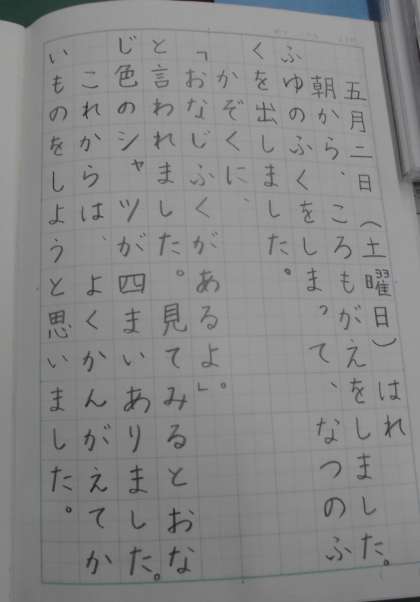 五月二日（土曜日）はれ
朝から、ころもがえをしました。
ふゆのふくをしまって、なつのふ
くを出しました。
かぞくに、
「おなじふくがあるよ」。
と言われました。見てみるとおな
じ色のシャツが四まいありました。
これからは、よくかんがえてか
いものをしようと思いました。